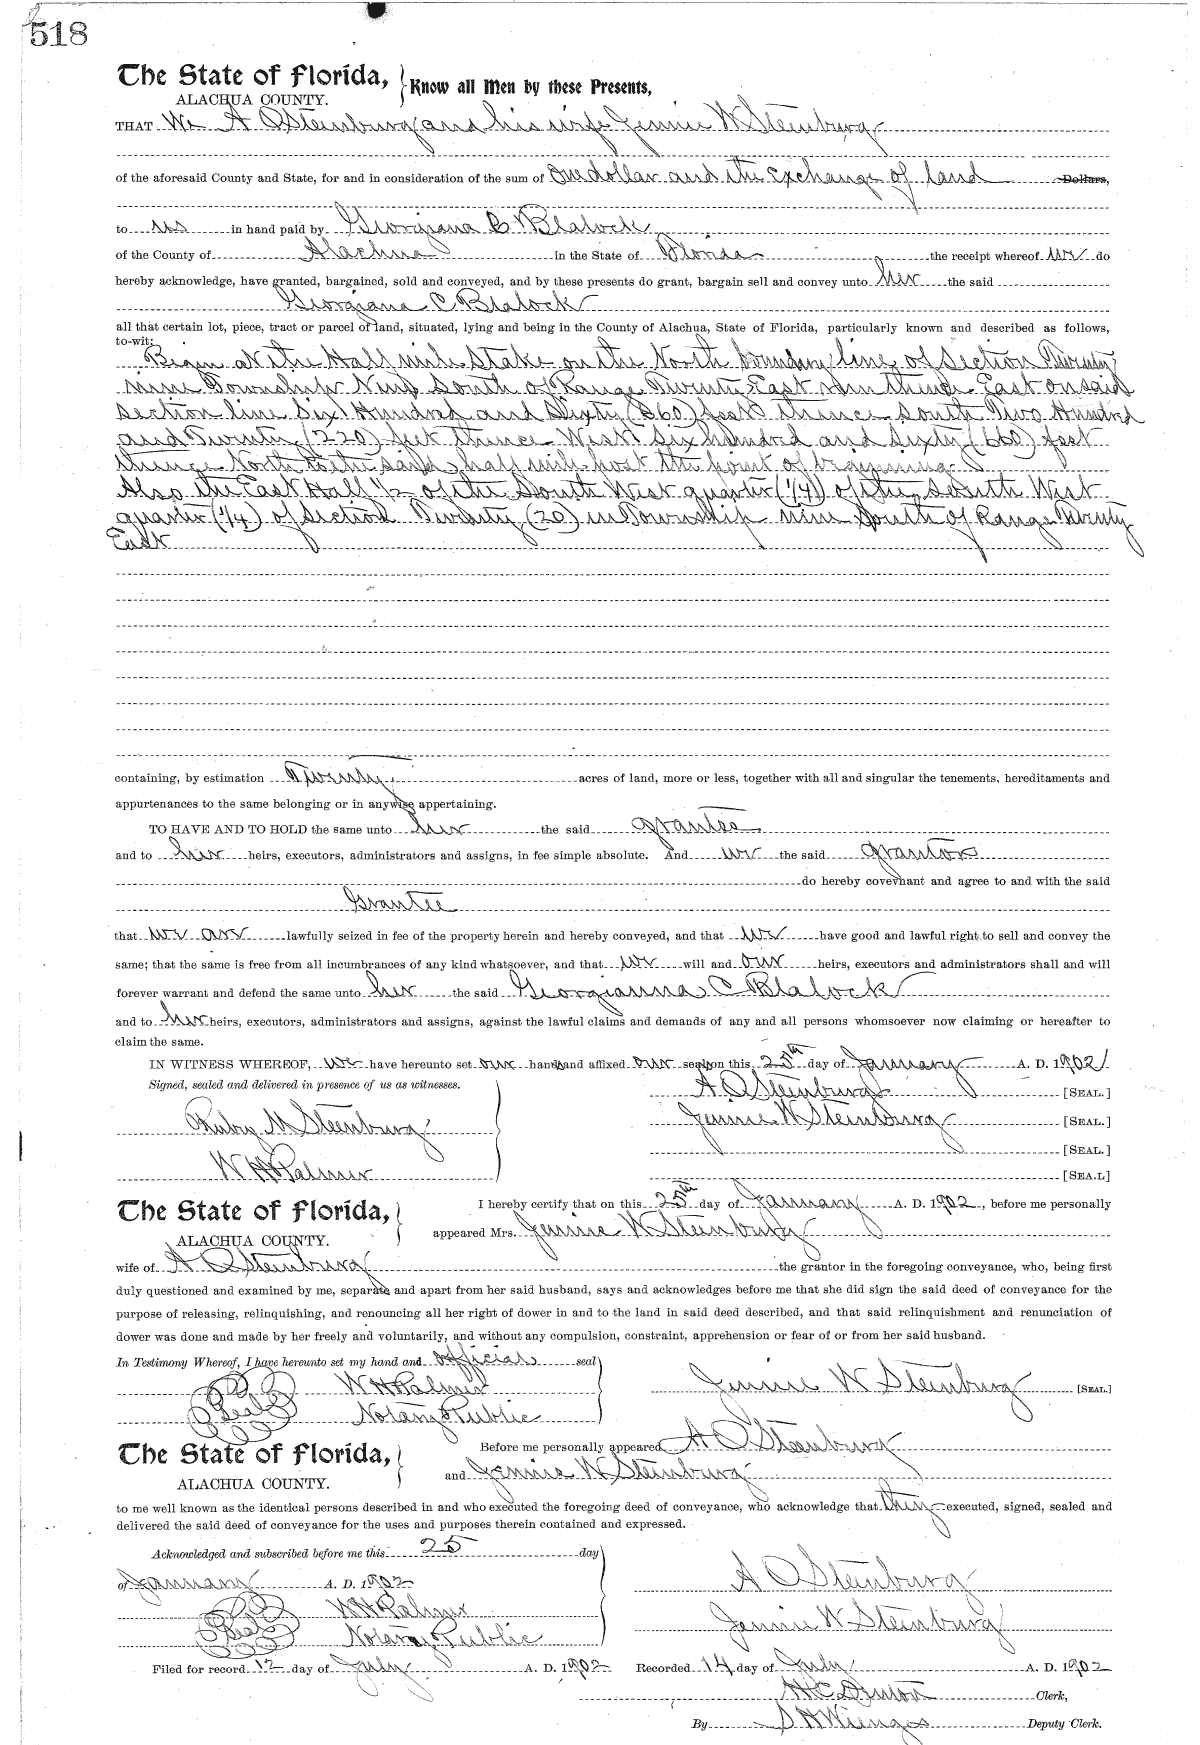 518
The State of Florida, } Know all Men by these Presents,
ALACHUA COUNTY.
THAT We A O Steenburg and his wife Jennie W Steenburg
of the aforesaid County and State, for and in consideration of the sum of One dollar and the Exchange of land Dollars,
to us in hand paid by Georgiana C Blalock
of the County of Alachua in the State of Florida the receipt whereof we do
hereby acknowledge, have granted, bargained, sold and conveyed, and by these presents do grant, bargain sell and convey unto her the said
Georgiana C Blalock
all that certain lot, piece, tract or parcel of land, situated, lying and being in the County of Alachua, State of Florida, particularly known and described as follows,
to-wit:
Begin at the Half mile Stake on the North boundary line of Section Twenty
nine Township Nine South of Range Twenty East run thence East on said
section line Six Hundred and Sixty (660) feet thence South Two Hundred
and Twenty (220) feet thence West Six hundred and Sixty (660) feet
thence North to the said half mile post the point of beginning
Also the East Half 1/2 of the South West quarter (1/4) of the South West
quarter (1/4) of Section Twenty (20) in Township nine South of Range Twenty
East
containing, by estimation Twenty acres of land, more or less, together with all and singular the tenements, hereditaments and
appurtenances to the same belonging or in anywise appertaining.
TO HAVE AND TO HOLD the same unto her the said grantee
and to her heirs, executors, administrators and assigns, in fee simple absolute. And we the said grantors
do hereby covenant and agree to and with the said
Grantee
that we are lawfully seized in fee of the property herein and hereby conveyed, and that we have good and lawful right to sell and convey the
same; that the same is free from all incumbrances of any kind whatsoever, and that we will and our heirs, executors and administrators shall and will
forever warrant and defend the same unto her the said Georgianna C Blalock
and to her heirs, executors, administrators and assigns, against the lawful claims and demands of any and all persons whomsoever now claiming or hereafter to
claim the same.
IN WITNESS WHEREOF, we have hereunto set our hands and affixed our seals on this 25th day of January A. D. 1902
Signed, sealed and delivered in presence of us as witnesses. A O Steenburg [SEAL.]
Ruby M Steenburg Jennie W Steenburg [SEAL.]
[SEAL.]
W H Palmer [SEAL.]
The State of Florida, } I hereby certify that on this 25th day of January A. D. 1902, before me personally
ALACHUA COUNTY. appeared Mrs. Jennie W Steenburg
wife of A O Steenburg the grantor in the foregoing conveyance, who, being first
duly questioned and examined by me, separate and apart from her said husband, says and acknowledges before me that she did sign the said deed of conveyance for the
purpose of releasing, relinquishing, and renouncing all her right of dower in and to the land in said deed described, and that said relinquishment and renunciation of
dower was done and made by her freely and voluntarily, and without any compulsion, constraint, apprehension or fear of or from her said husband.
In Testimony Whereof, I have hereunto set my hand and official seal
W H Palmer Jennie W Steenburg [SEAL.]
Seal Notary Public
The State of Florida, } Before me personally appeared A O Steenburg
ALACHUA COUNTY. and Jennie W Steenburg
to me well known as the identical persons described in and who executed the foregoing deed of conveyance, who acknowledge that they executed, signed, sealed and
delivered the said deed of conveyance for the uses and purposes therein contained and expressed.
Acknowledged and subscribed before me this 25 day
of January A. D. 1902 A O Steenburg
W H Palmer
Seal Notary Public Jennie W Steenburg
Filed for record 12 day of July A. D. 1902 Recorded 14 day of July A. D. 1902
H C Denton Clerk,
By S H Wienges Deputy Clerk.